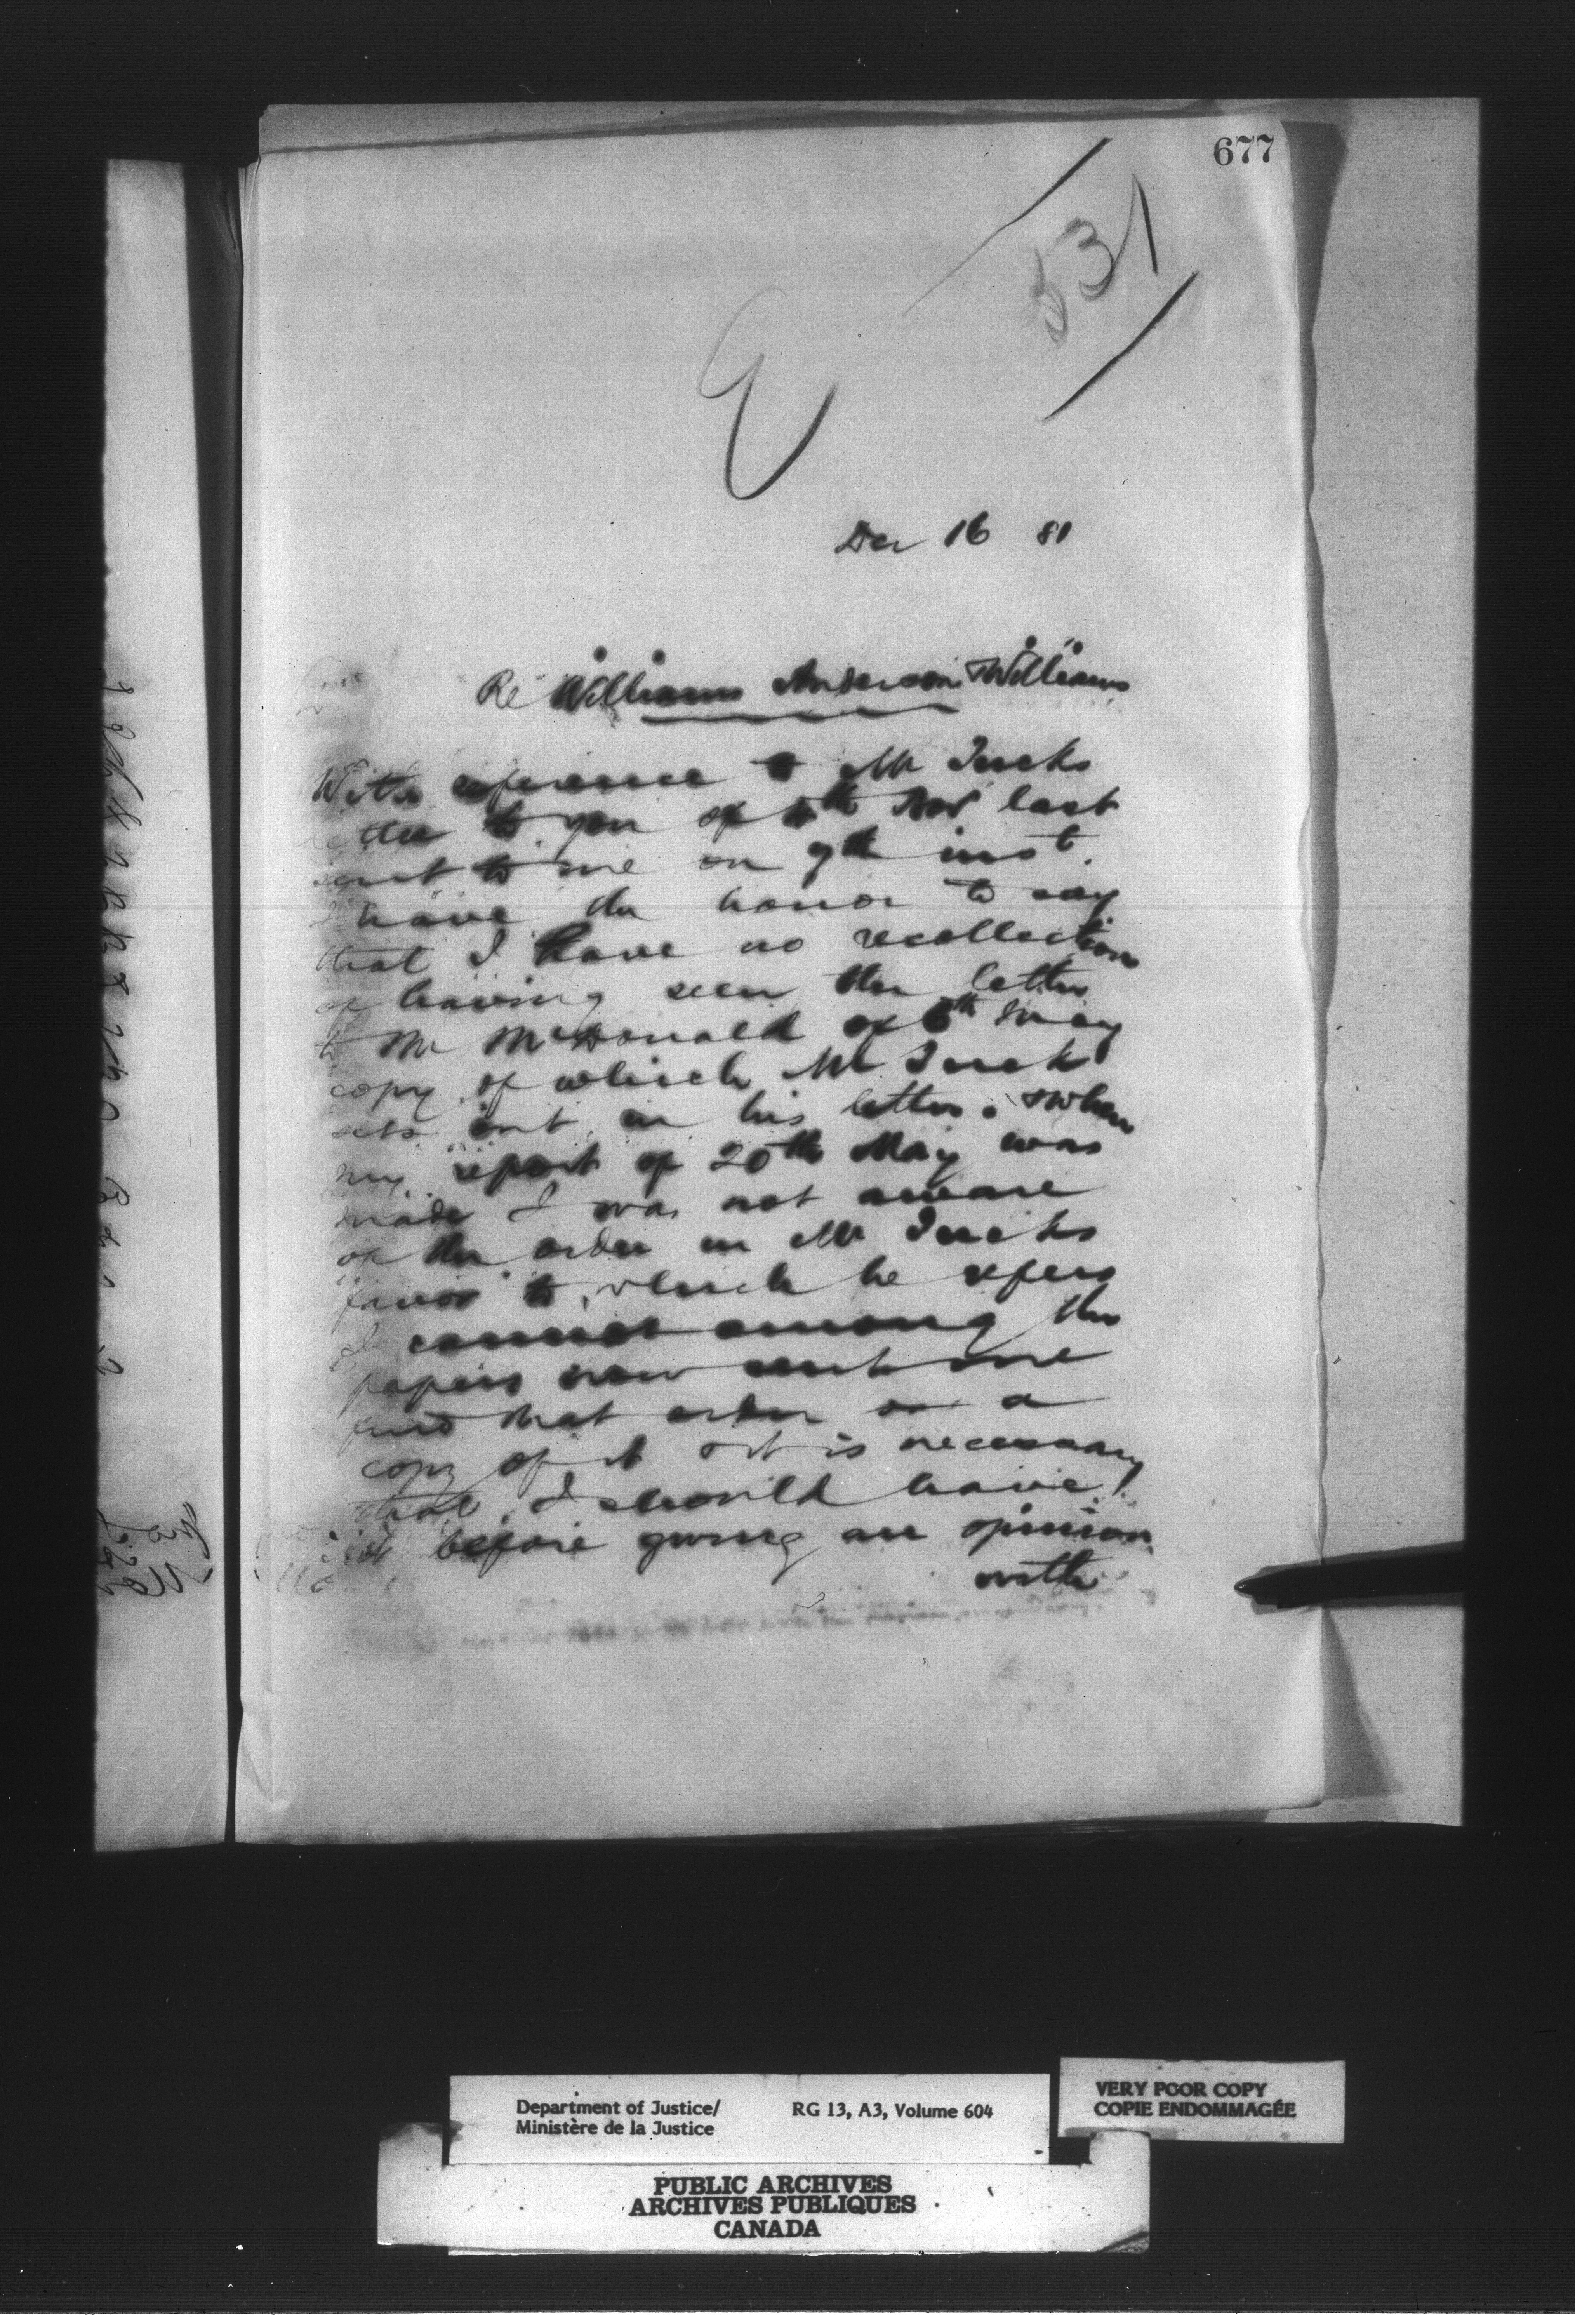 677
531
E
Dec 16 81
Re Williams Anderson & Williams
With reference to Mr Tucks
letter to you of th Nov last
sent to me on 9th inst.
I have the honor to say
that I have no recollection
of having seen the letter
to Mr McDonald of 6th May
copy of which Mr Tuck
sets out in his letter. & when
my report of 20th May was
made I was not aware
of the order in Mr Tucks
favor to which he refers
I cannot among the
papers now sent me
find that order or a
copy of it & it is necessary
that I should have
it before giving an opinion
with
Department of Justice/ RG 13, A3, Volume 604
Ministère de la Justice
VERY POOR COPY
COPIE ENDOMMAGÉE
PUBLIC ARCHIVES
ARCHIVES PUBLIQUES
CANADA